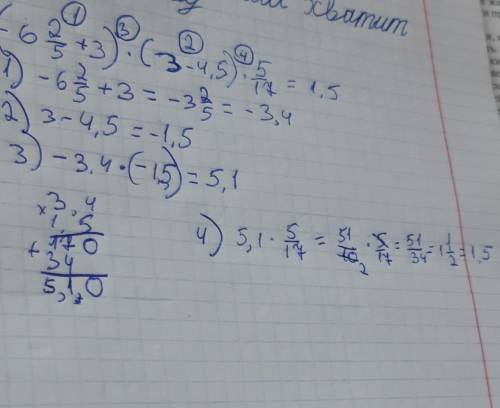 хватит
(-6 2/5 + 3) · (3 - 4,5) · 5/17 = 1,5
① ③ ② ④
1) -6 2/5 + 3 = -3 2/5 = -3,4
2) 3 - 4,5 = -1,5
3) -3,4 · (-1,5) = 5,1
× 3,4
1,5
+ 170
34
5,10
4) 5,1 · 5/17 = 51/10 · 5/17 = 51/34 = 1 1/2 = 1,5
2